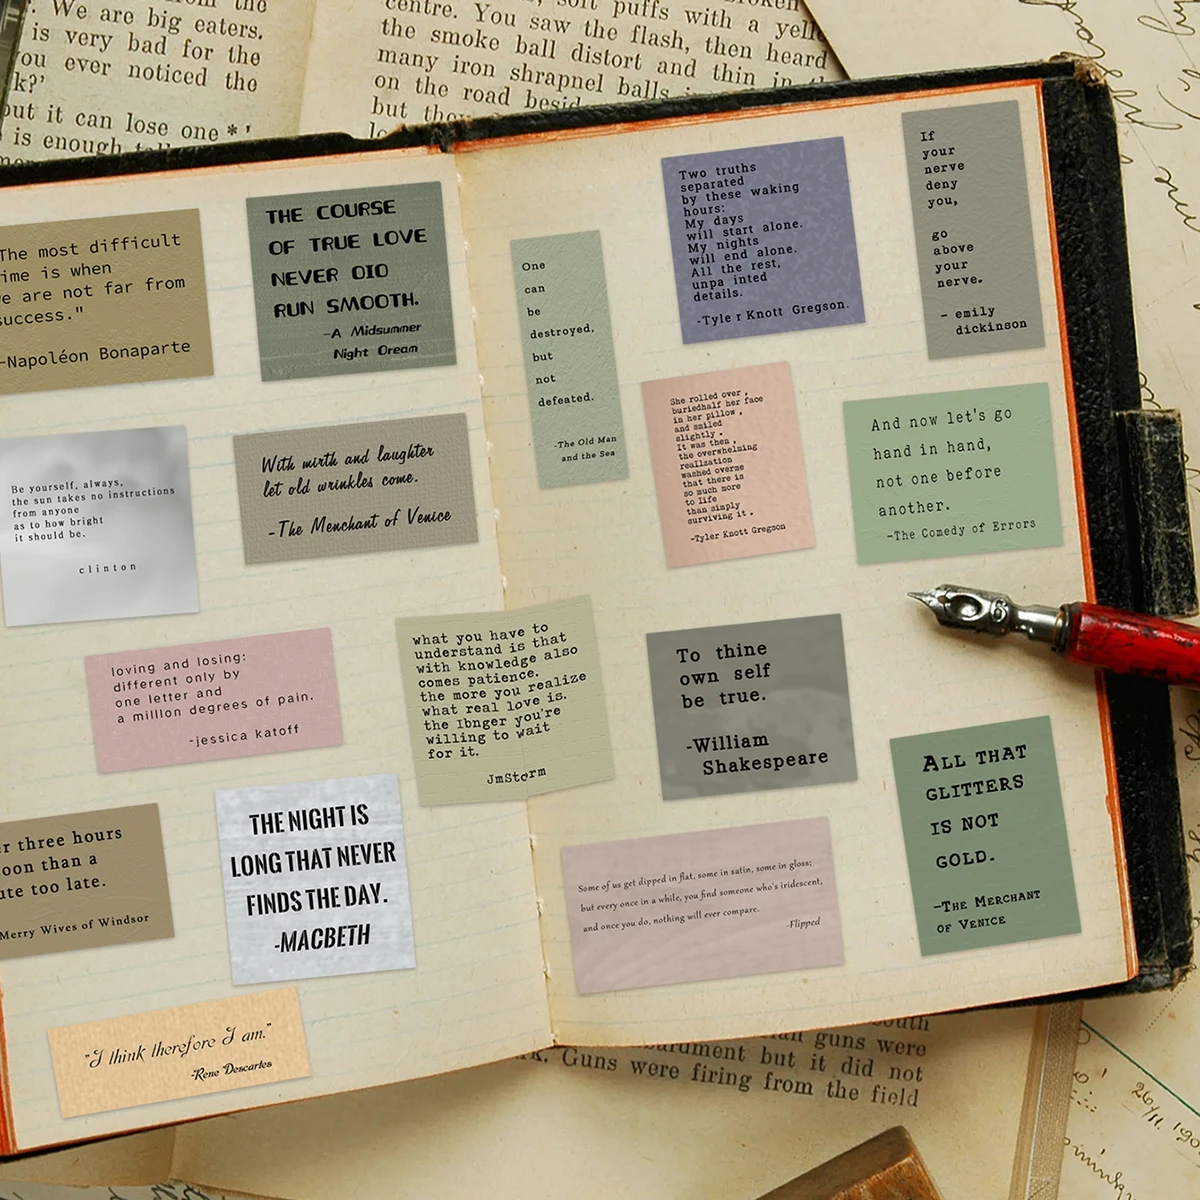 . We are big eaters.
is very bad for the
ou ever noticed the
k?'
out it can lose one * '
is enough
centre. You saw the flash, then heard
puffs with a
the smoke ball distort and thin in
many iron shrapnel balls
on the road
but
The most difficult
ime is when
e are not far from
success."
-Napoléon Bonaparte
THE COURSE
OF TRUE LOVE
NEVER DID
RUN SMOOTH.
-A Midsummer
Night Dream
One
can
be
destroyed,
but
not
defeated.
-The Old Man
and the Sea
Two truths
separated
by these waking
hours:
My days
will start alone.
My nights
will end alone.
All the rest,
unpa inted
details.
-Tyle r Knott Gregson.
If
your
nerve
deny
you,
go
above
your
nerve.
- emily
dickinson
Be yourself, always,
the sun takes no instructions
from anyone
as to how bright
it should be.
clinton
With mirth and laughter
let old wrinkles come.
-The Menchant of Venice
She rolled over ,
buriedhalf her face
in her pillow ,
and smiled
slightly .
It was then ,
the overwhelming
realization
washed overme
that there is
so much more
to life
than simply
surviving it .
-Tyler Knott Gregson
And now let's go
hand in hand,
not one before
another.
-The Comedy of Errors
loving and losing:
different only by
one letter and
a million degrees of pain.
-jessica katoff
what you have to
understand is that
with knowledge also
comes patience.
the more you realize
what real love is.
the lbnger you're
willing to wait
for it.
JmStorm
To thine
own self
be true.
-William
Shakespeare
ALL THAT
GLITTERS
IS NOT
GOLD.
-THE MERCHANT
OF VENICE
r three hours
oon than a
ute too late.
Merry Wives of Windsor
THE NIGHT IS
LONG THAT NEVER
FINDS THE DAY.
-MACBETH
Some of us get dipped in flat, some in satin, some in gloss;
but every once in a while, you find someone who's iridescent,
and once you do, nothing will ever compare.
-Flipped
"I think therefore I am."
-Rene Descartes
guns were
but it did not
Guns were firing from the field